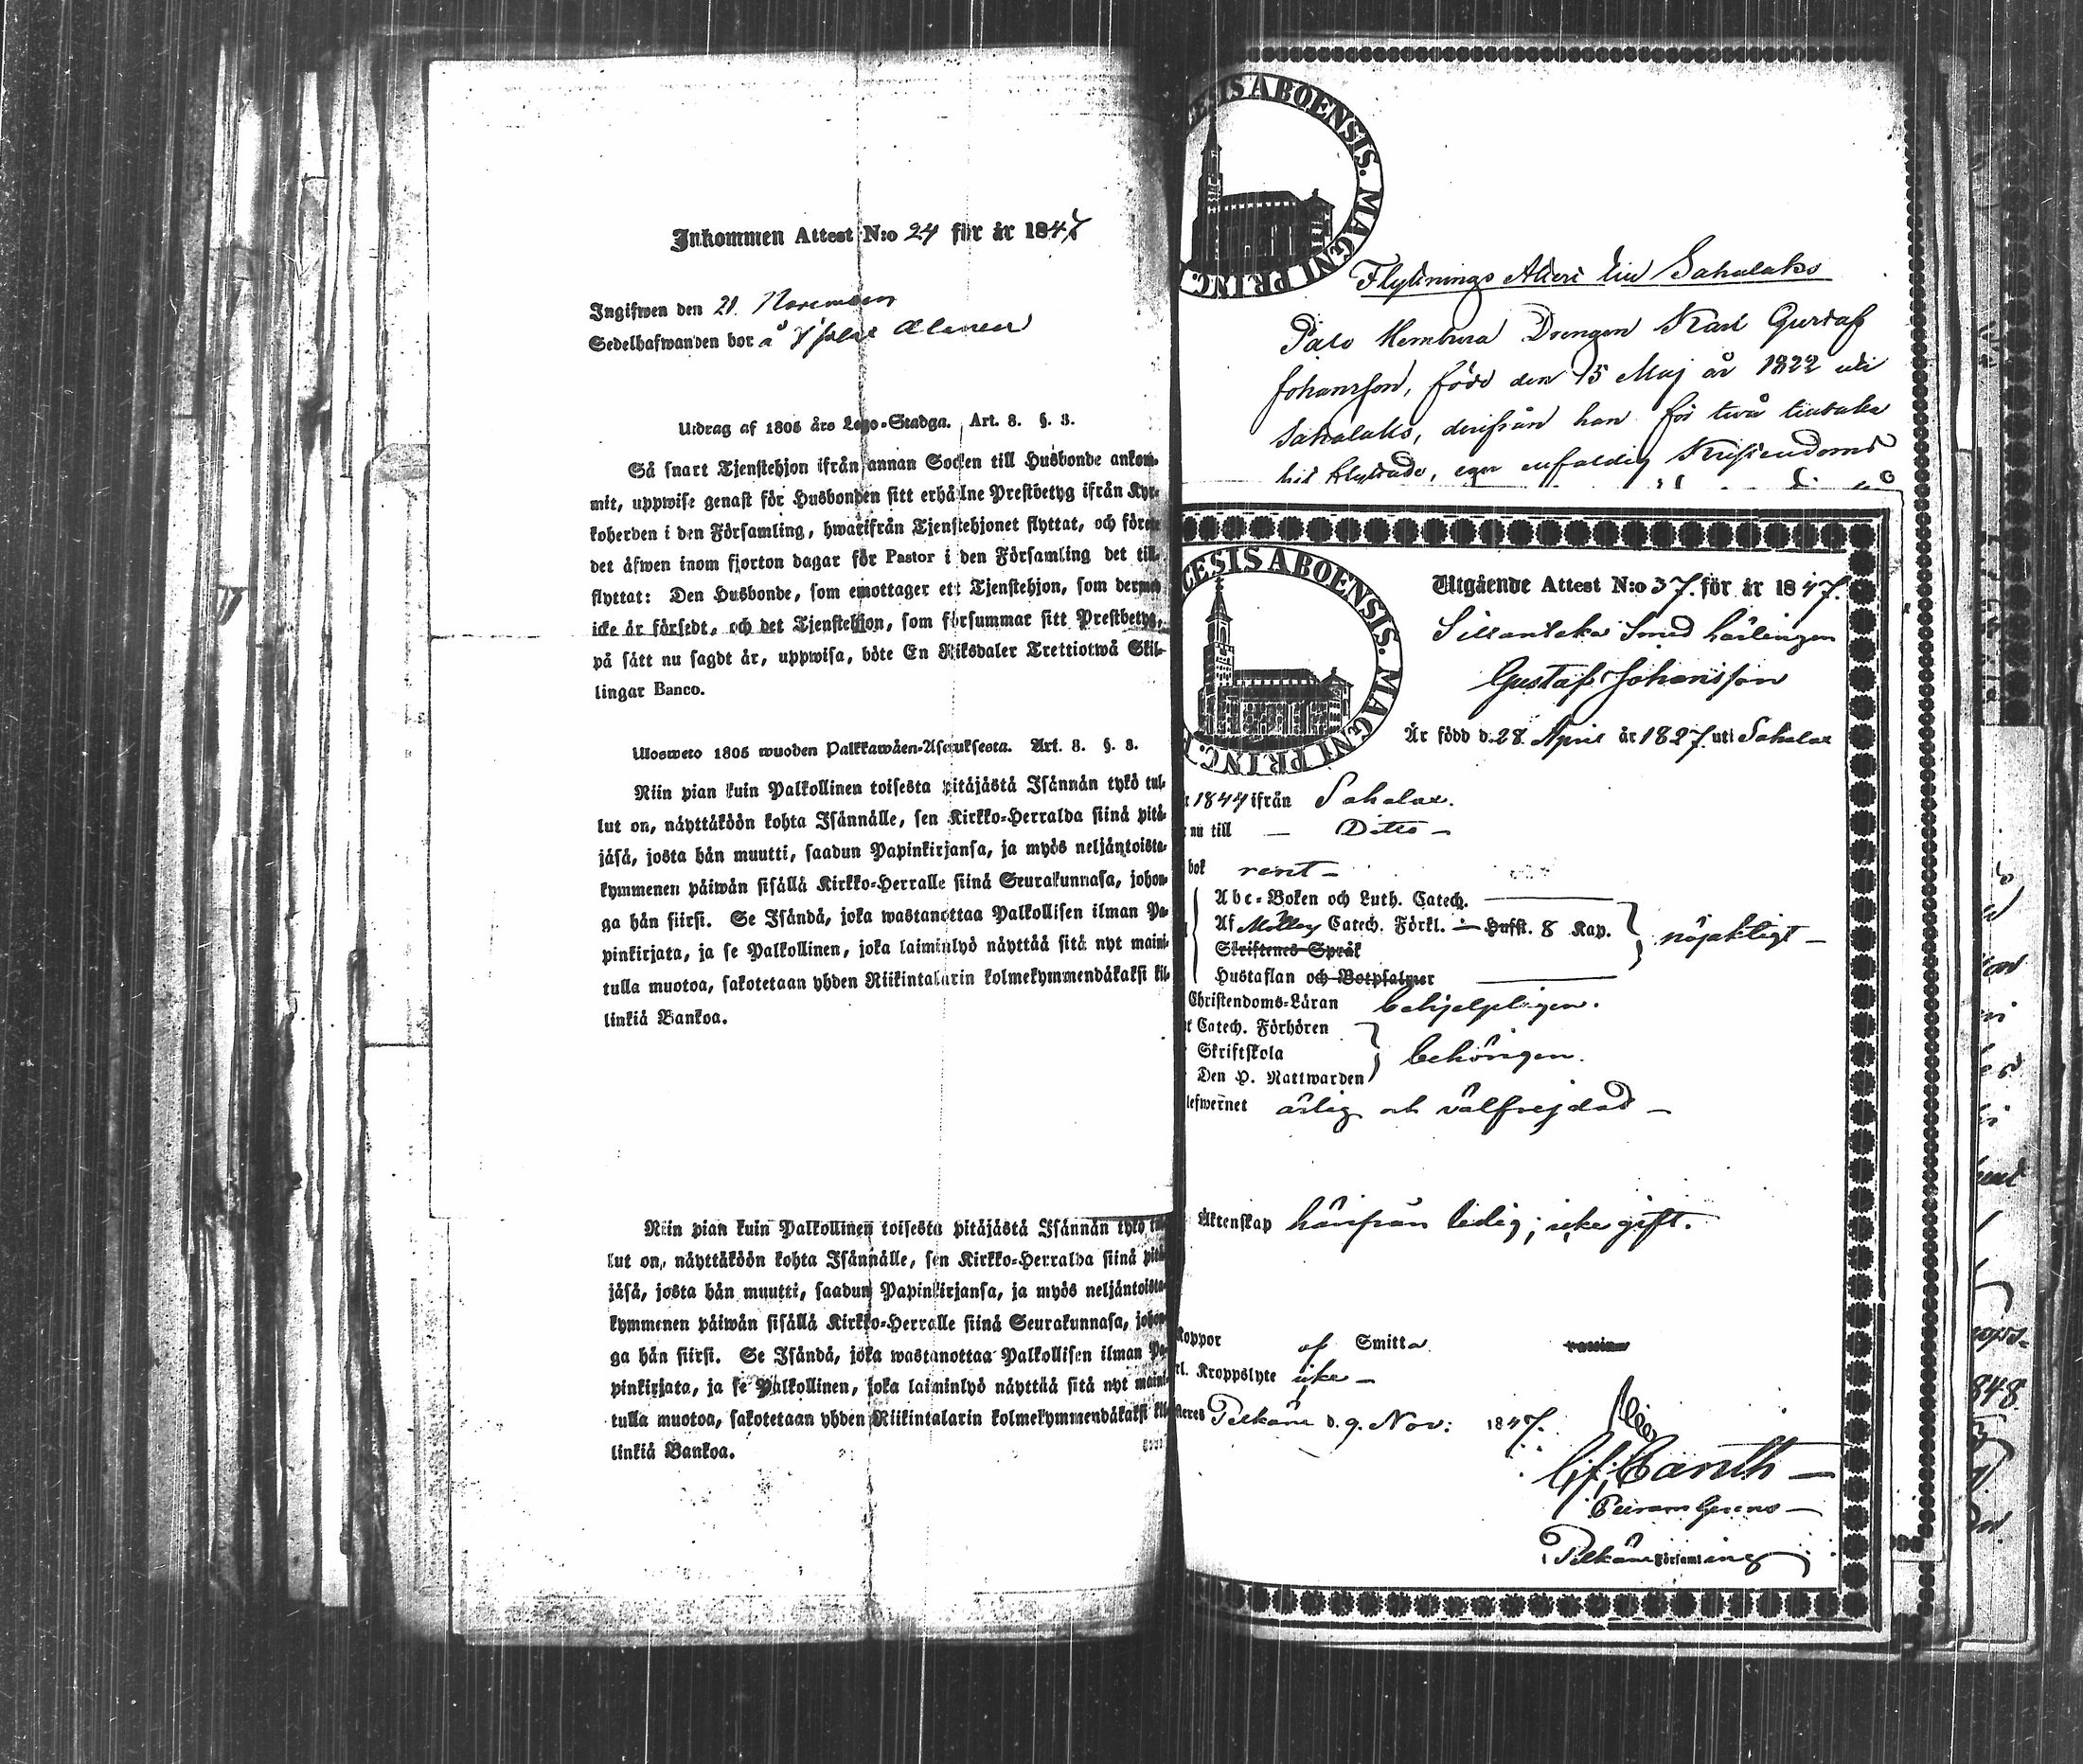 Inkommen Attest N:o 24 för år 1847
Ingifwen den 21. November
Sedelhafwanden bor å
Utdrag af 1805 års Lego-Stadga. Art. 8. §. 3.
Så snart Tjenstehjon ifrån annan Socken till Husbonde ankom-
mit, uppwise genast för Husbonden sitt erhållne Prestbetyg ifrån Kyr-
koherden i den Församling, hwarifrån Tjenstehjonet flyttat, och förete
det äfwen inom fjorton dagar för Pastor i den Församling det till-
flyttat: Den Husbonde, som emottager ett Tjenstehjon, som dermed
icke är försedt, och det Tjenstehjon, som försummar sitt Prestbetyg,
på sätt nu sagdt är, uppwisa, böte En Riksdaler Trettiotwå Skil-
lingar Banco.
Ulosweto 1805 wuoden Palkkawäen-Asetuksesta. Art. 8. §. 3.
Niin pian kuin Palkollinen toisesta pitäjästä Isännän tykö tul-
lut on, näyttäköön kohta Isännälle, sen Kirkko-Herralda siinä pitä-
jäsä, josta hän muutti, saadun Papinkirjansa, ja myös neljäntoista-
kymmenen päiwän sisällä Kirkko-Herralle siinä Seurakunnasa, johon-
ga hän siirsi. Se Isändä, joka wastanottaa Palkollisen ilman Pa-
pinkirjata, ja se Palkollinen, joka laiminlyö näyttää sitä nyt maini-
tulla muotoa, sakotetaan yhden Riikintalarin kolmekymmendäkaksi kil-
linkiä Bankoa.
Niin pian kuin Palkollinen toisesta pitäjästä Isännän tykö tul-
lut on, näyttäköön kohta Isännälle, sen Kirkko-Herralda siinä pitä-
jäsä, josta hän muutti, saadun Papinkirjansa, ja myös neljäntoista-
kymmenen päiwän sisällä Kirkko-Herralle siinä Seurakunnasa, johon-
ga hän siirsi. Se Isändä, joka wastanottaa Palkollisen ilman Pa-
pinkirjata, ja se Palkollinen, joka laiminlyö näyttää sitä nyt maini-
tulla muotoa, sakotetaan yhden Riikintalarin kolmekymmendäkaksi kil-
linkiä Bankoa.
CESIS ABOENSIS. MAGNI PRINC.
Flyttnings Attest till Sahalaks
Palo Hembura Drengen Karl Gustaf
Johansson, född den 15 Maj år 1822 uti
Sahalaks, derifrån han för twå tillbaka
hit flyttade, eger enfaldig Kristendoms
CESIS ABOENSIS. MAGNI PRINC.
Utgående Attest N:o 37. för år 1847.
Smed lärlingen
Gustaf Johansson
Är född d. 28. April år 1827. uti Sahalax
1844 ifrån Sahalax.
nu till — Ditto —
bok rent —
Abc-Boken och Luth. Catech.
Af Möllers Catech. Förkl. — Hufst. 8 Kap.
nöjaktigt —
Skriftenes Språk
Hustaflan och Botpsalmer
Christendoms-Läran behjelpligen.
Catech. Förhören
Skriftskola
behörigen.
Den H. Nattwarden
lefwernet ärlig och välfrejdad —
Äktenskap härifrån ledig; icke gift.
Koppor af Smitta
rl. Kroppslyte icke —
Pelkäne d. 9. Nov: 1847.
C. J. Canth —
Pelkäne Församling